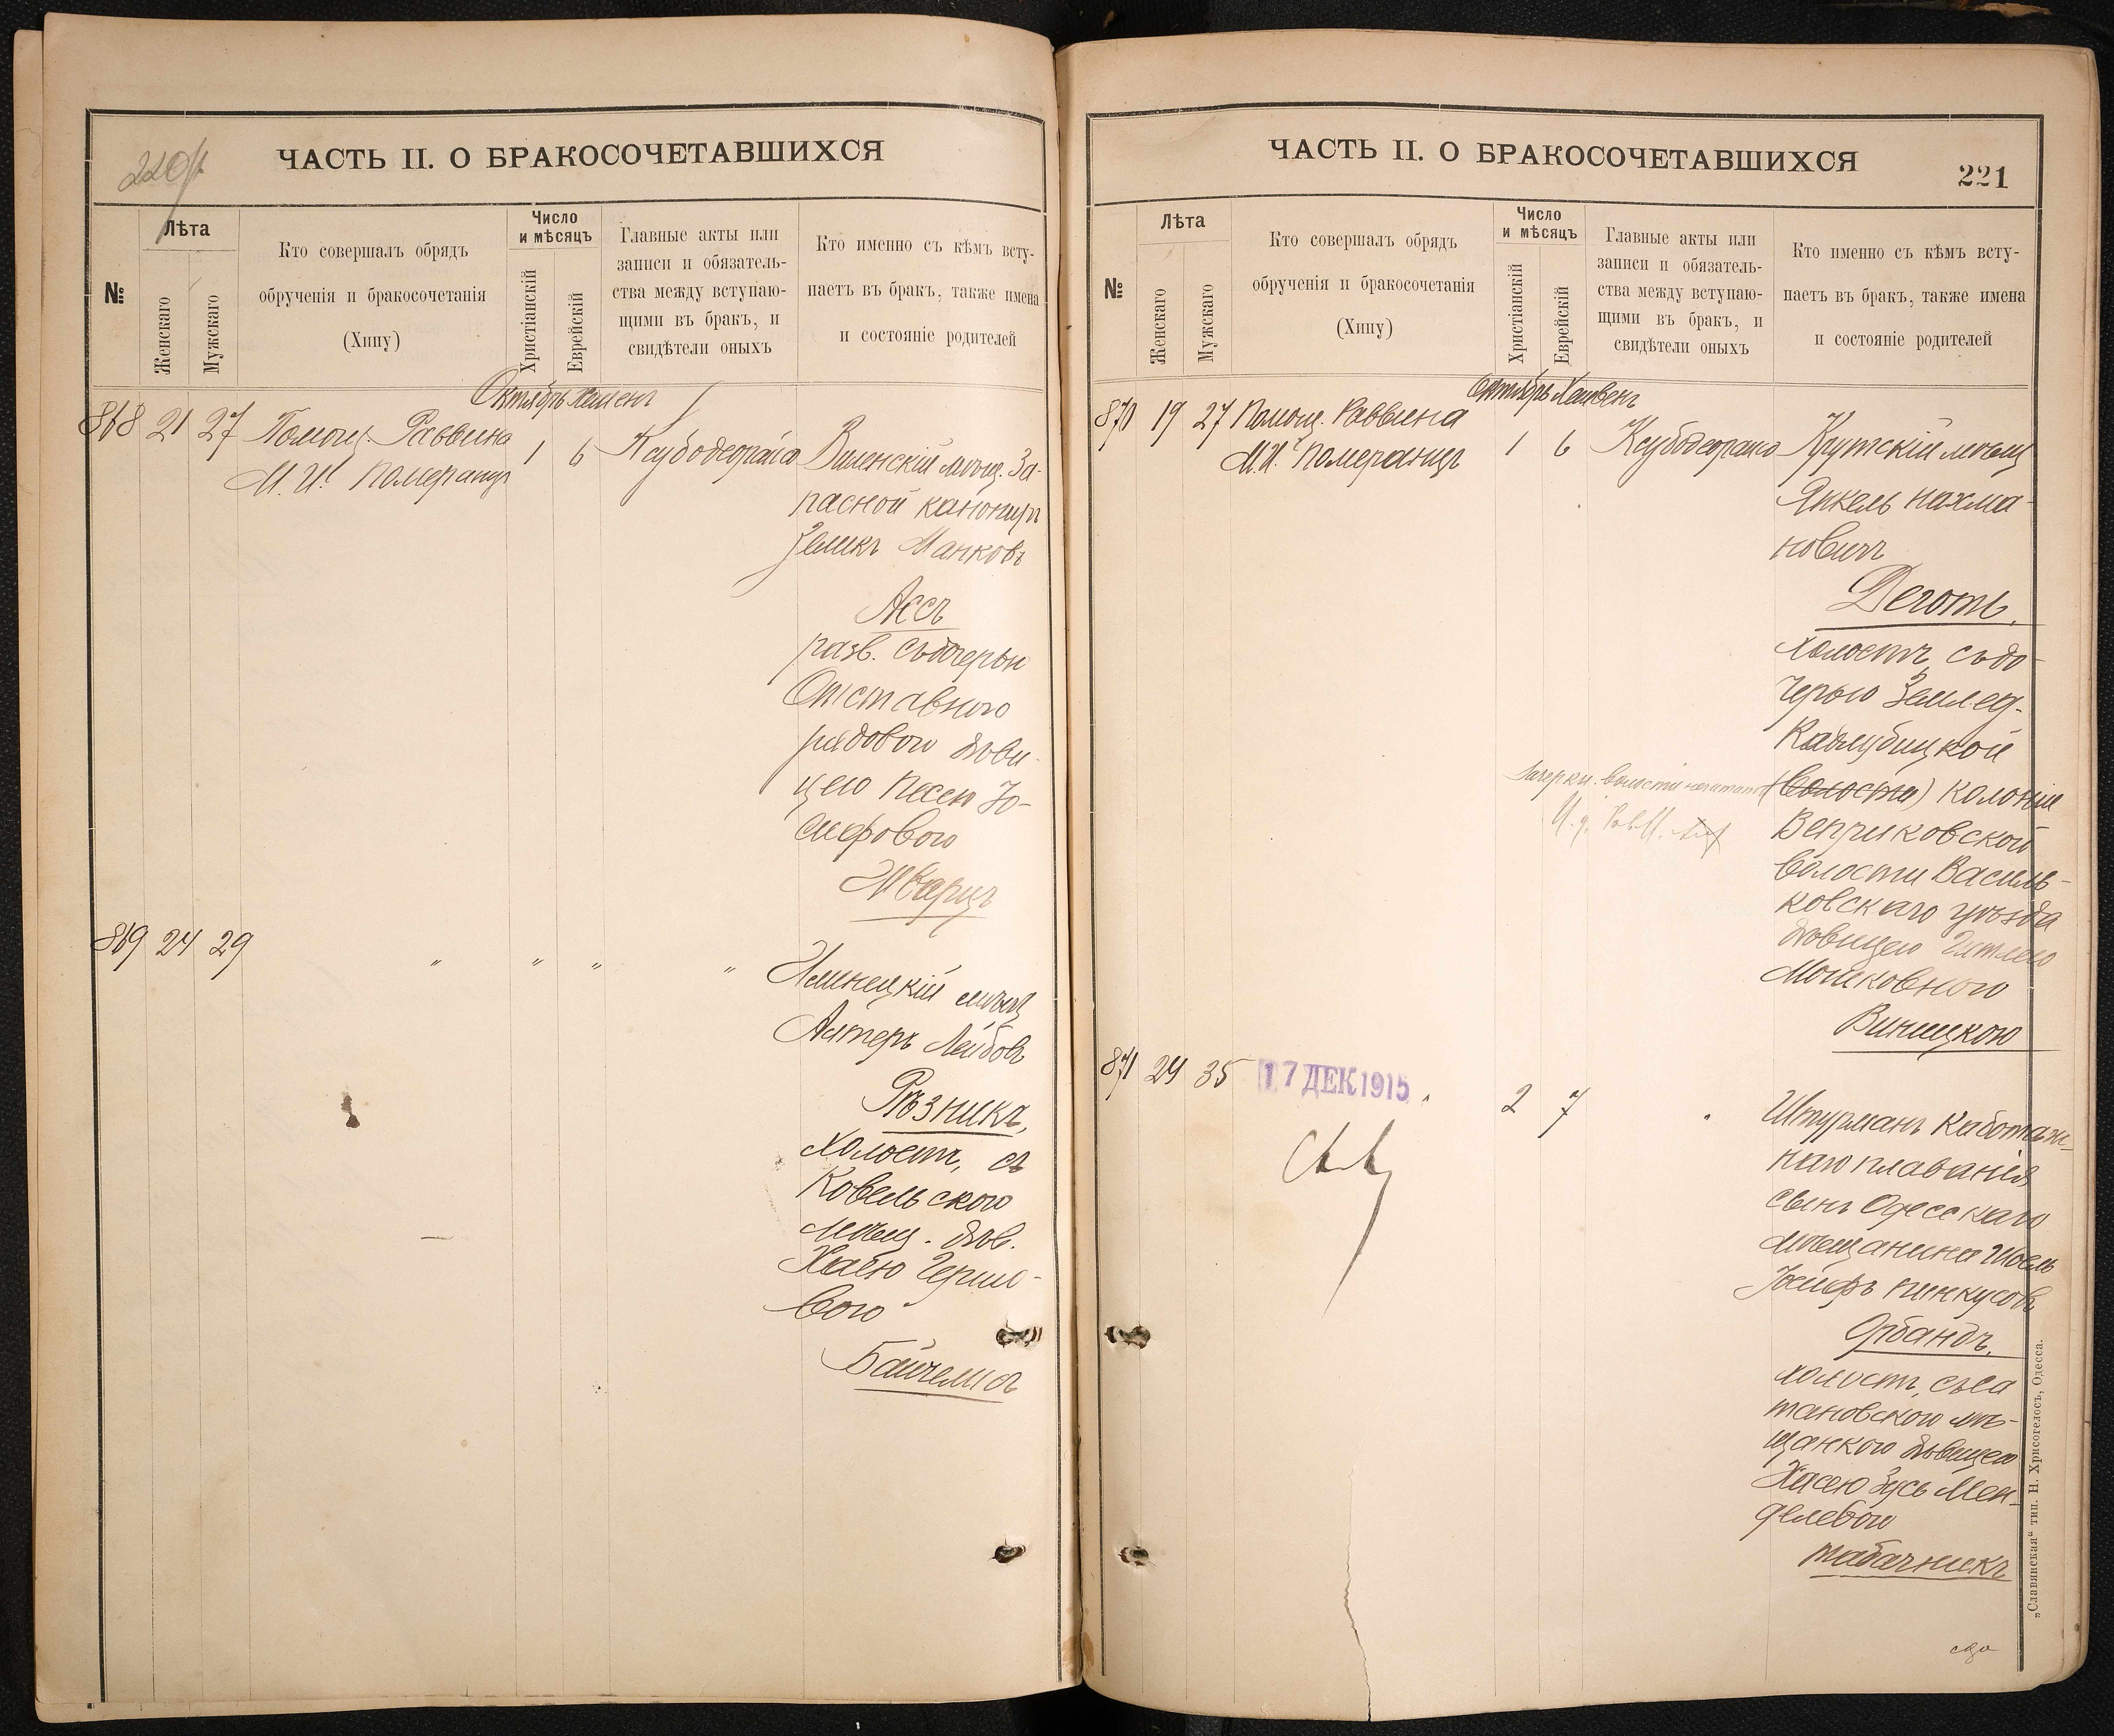 220/1
ЧАСТЬ II. О БРАКОСОЧЕТАВШИХСЯ
№
Лѣта
Женскаго
Мужскаго
Кто совершалъ обрядъ
обрученія и бракосочетанія
(Хипу)
Число
и мѣсяцъ
Христіанскій
Еврейскій
Главные акты или
записи и обязатель-
ства между вступаю-
щими въ бракъ, и
свидѣтели оныхъ
Кто именно съ кѣмъ всту-
паетъ въ бракъ, также имена
и состояніе родителей
Октябрь
868 21 27 Помощ. Раввина
М. И. Померанцъ
1 6
Виленскій мѣщ. За-
пасной канониръ
Зеликъ Манковъ
Ассъ
разв. съ дочерью
Отставного
рядового дѣви-
цею Песею Іо-
сифовою
Шварцъ
869 24 29 " " " "
Илинецкій мѣщ
Алтеръ Лейбовъ
Рѣзникъ,
холостъ, съ
Ковельскою
мѣщ. дѣв.
Хаею Герш-
вою
Байчелисъ
ЧАСТЬ II. О БРАКОСОЧЕТАВШИХСЯ
221
№
Лѣта
Женскаго
Мужскаго
Кто совершалъ обрядъ
обрученія и бракосочетанія
(Хипу)
Число
и мѣсяцъ
Христіанскій
Еврейскій
Главные акты или
записи и обязатель-
ства между вступаю-
щими въ бракъ, и
свидѣтели оныхъ
Кто именно съ кѣмъ всту-
паетъ въ бракъ, также имена
и состояніе родителей
Октябрь Хешвенъ
870 19 27 Помощ. Раввина
М. И. Померанцъ
1 6
Крутскій мѣщ
Янкель Нахма-
новичъ
Деготь,
холостъ, съ до-
черью Землед.
Кадлубицкой
(волости) колоніи
Веприковской
волости Василь-
ковскаго уѣзда
дѣвицею
Мошковною
Виницкою
871 24 35
17 ДЕК 1915
2 7
Штурманъ каботаж-
наго плаванія
сынъ Одесскаго
мѣщанина Шоель
Іосифъ Пинкусовъ
Орбандъ,
холостъ, съ Са
тановскою мѣ-
щанкою дѣвицею
Хасею Зусь Мен-
делевою
Табачникъ
„Славянская“ тип. Н. Хрисогелосъ, Одесса.